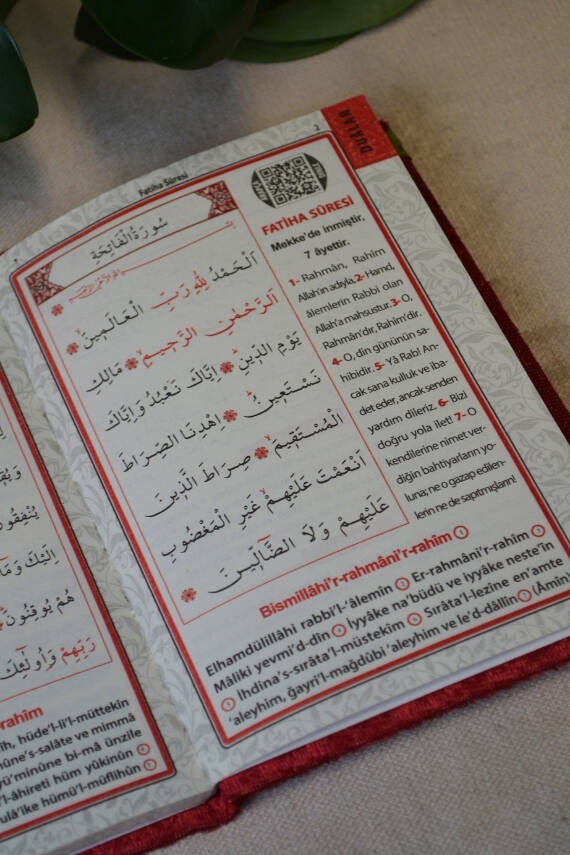 2
DUALAR
Fatiha Sûresi
سُورَةُ الْفَاتِحَةِ
اَلْحَمْدُ لِلّٰهِ رَبِّ الْعَالَمٖينَ
اَلرَّحْمٰنِ الرَّحٖيمِ مَالِكِ
يَوْمِ الدّٖينِ اِيَّاكَ نَعْبُدُ وَاِيَّاكَ
نَسْتَعٖينُ اِهْدِنَا الصِّرَاطَ
الْمُسْتَقٖيمَ صِرَاطَ الَّذٖينَ
اَنْعَمْتَ عَلَيْهِمْ غَيْرِ الْمَغْضُوبِ
عَلَيْهِمْ وَلَا الضَّٓالّٖينَ
FATİHA SÛRESİ
Mekke'de inmiştir,
7 âyettir.
1- Rahmân, Rahîm
Allah'ın adıyla. 2- Hamd,
âlemlerin Rabbi olan
Allah'a mahsustur. 3- O,
Rahmân'dır, Rahîm'dir.
4- O, din gününün sa-
hibidir. 5- Yâ Rab! An-
cak sana kulluk ve iba-
det eder, ancak senden
yardım dileriz. 6- Bizi
doğru yola ilet! 7- O
kendilerine nimet ver-
diğin bahtiyarların yo-
luna; ne o gazap edilen-
lerin ne de sapıtmışların!
Bismillâhi'r-rahmâni'r-rahîm
Elhamdülillâhi rabbi'l-'âlemîn Er-rahmâni'r-rahîm
Mâliki yevmi'd-dîn İyyâke na'büdü ve iyyâke neste'în
İhdina's-sırâta'l-müstekîm Sırâta'l-lezîne en'amte
'aleyhim, ğayri'l-mağdûbi 'aleyhim ve le'd-dâllîn (Âmîn)
يُنْفِقُونَ
اِلَيْكَ وَمَٓا
هُمْ يُوقِنُونَ
رَبِّهِمْ وَاُولٰٓئِكَ
rahîm
îh, hüde'l-li'l-müttekîn
ûne's-salâte ve mimmâ
yü'minûne bi-mâ ünzile
'l-âhireti hüm yûkinûn
ulâ'ike hümü'l-müflihûn